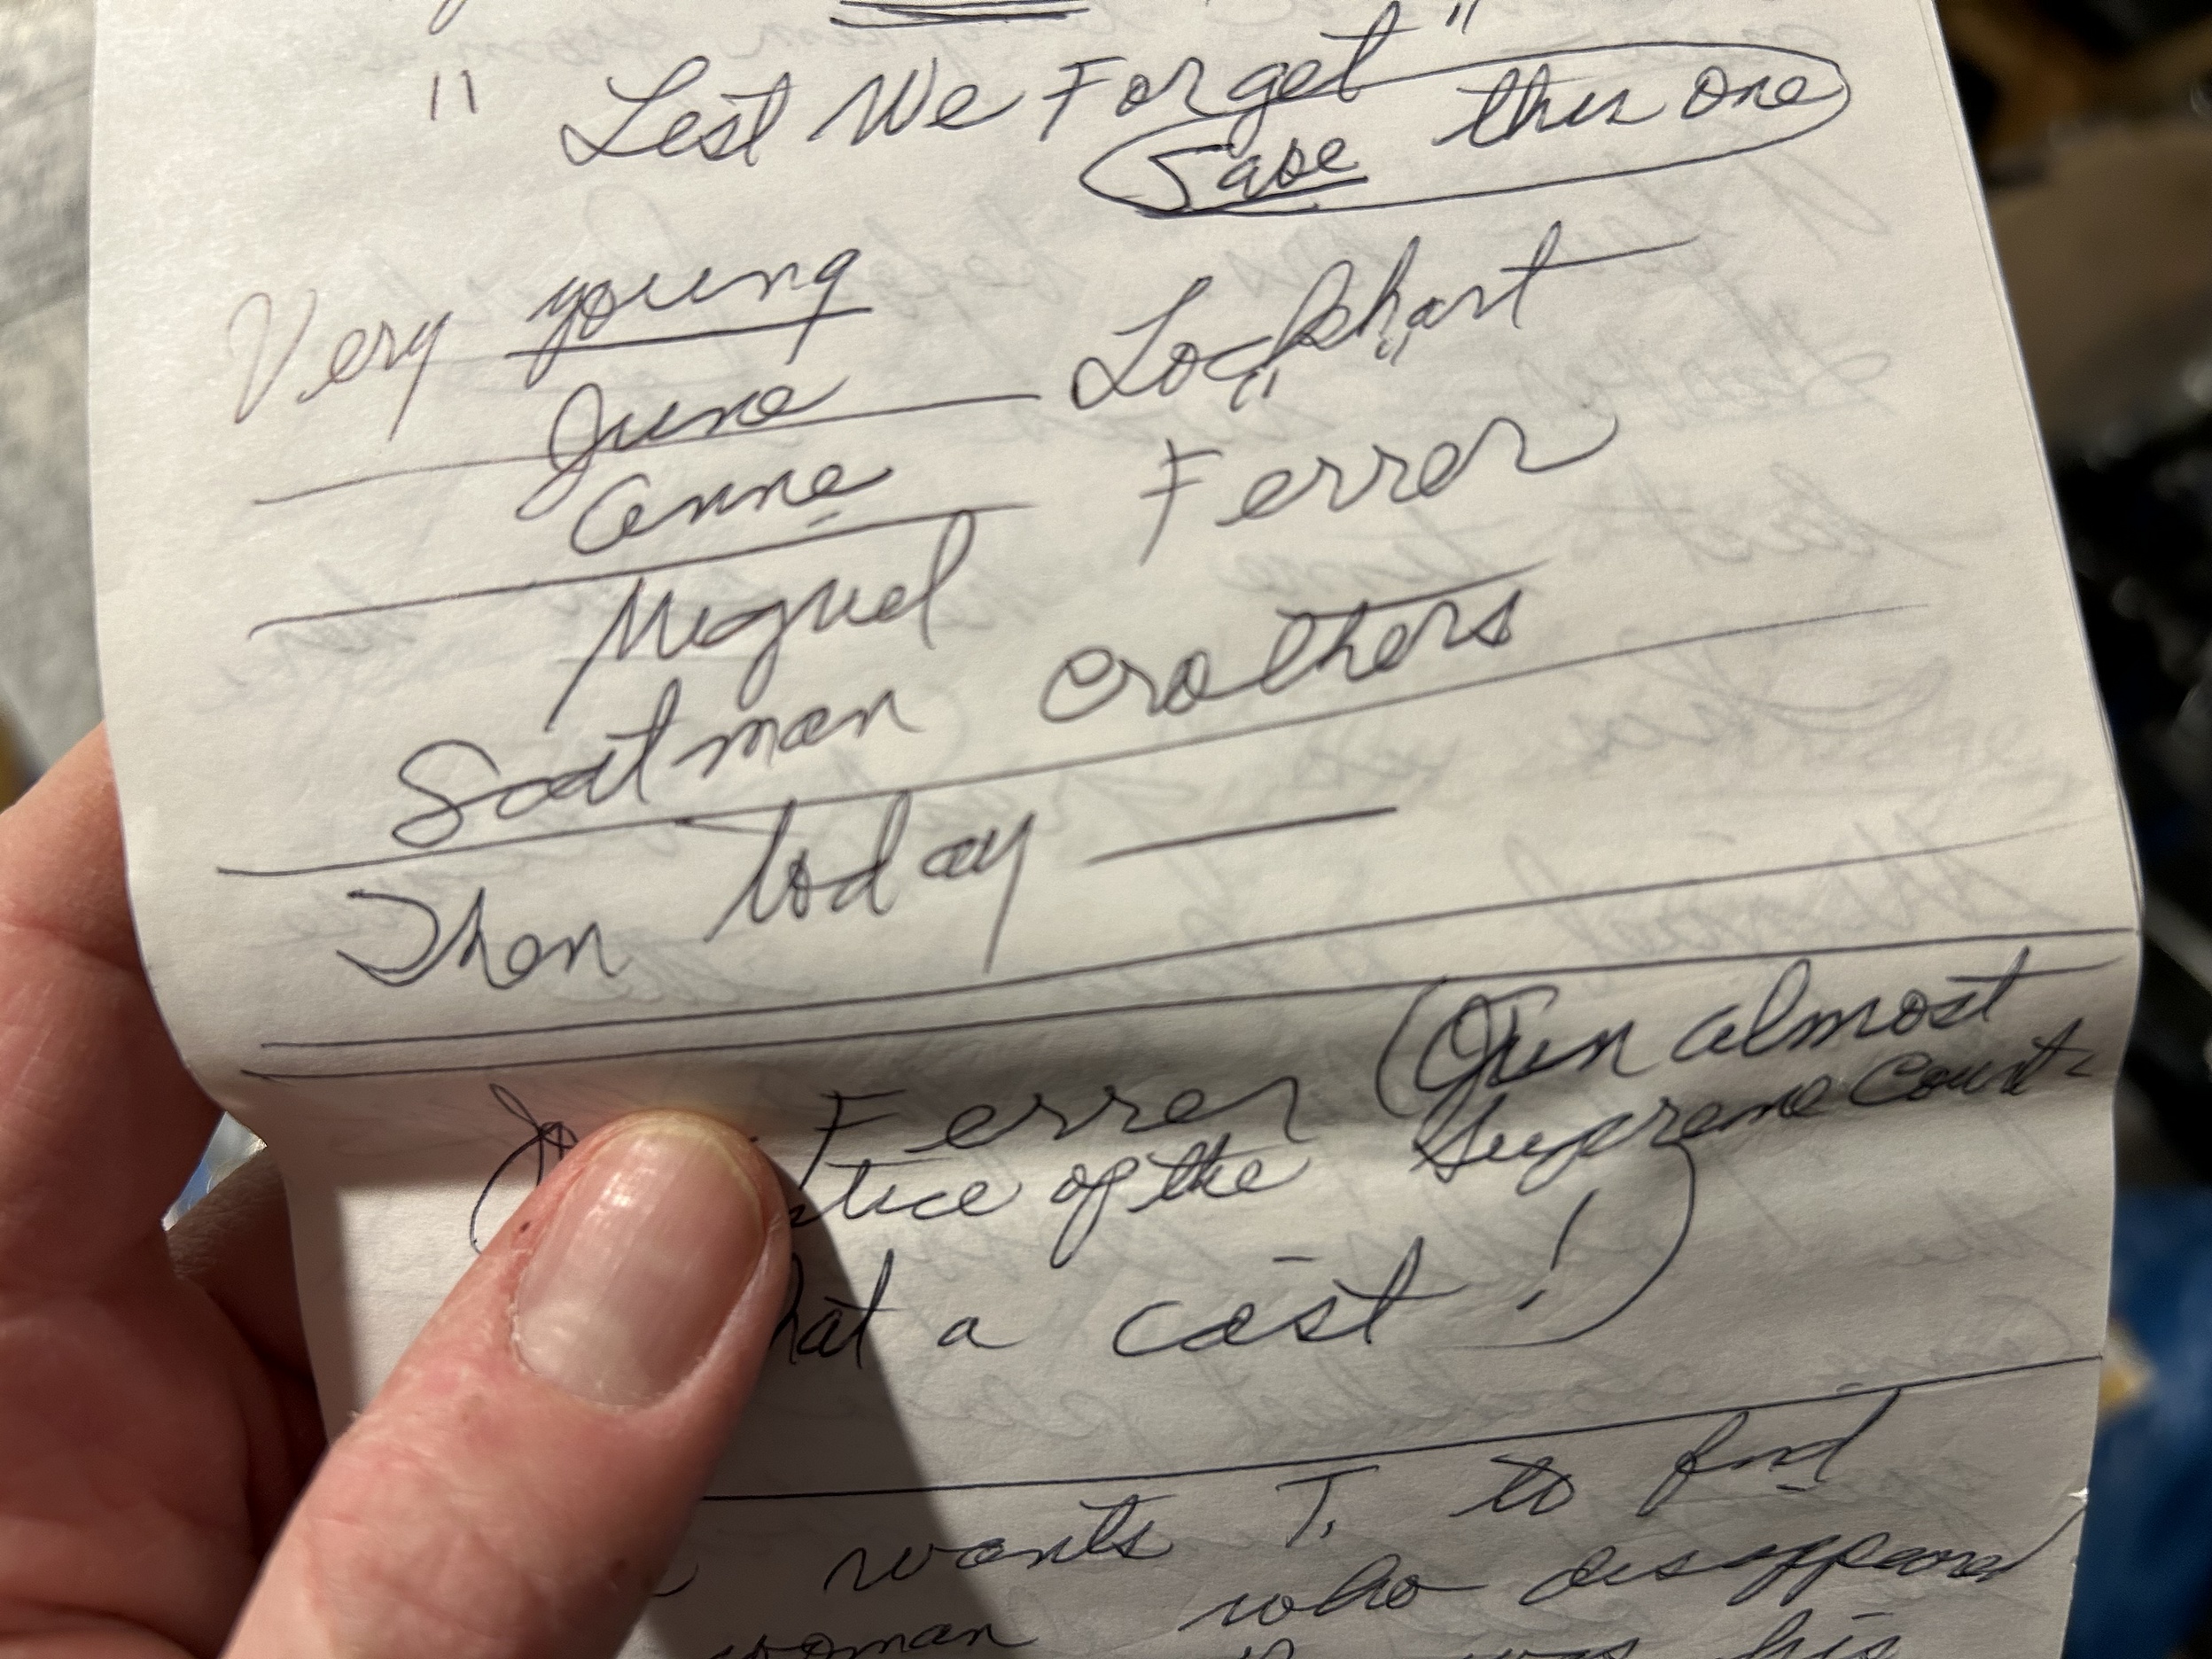 " Lest We Forget "
Save this one
Very young
June Lockhart
Anne "
Miguel Ferrer
Scatman Crothers
Then today —
Ferrer ( almost
tice of the Supreme Court
hat a cast ! )
wants T. to find
woman who disappeared
was his